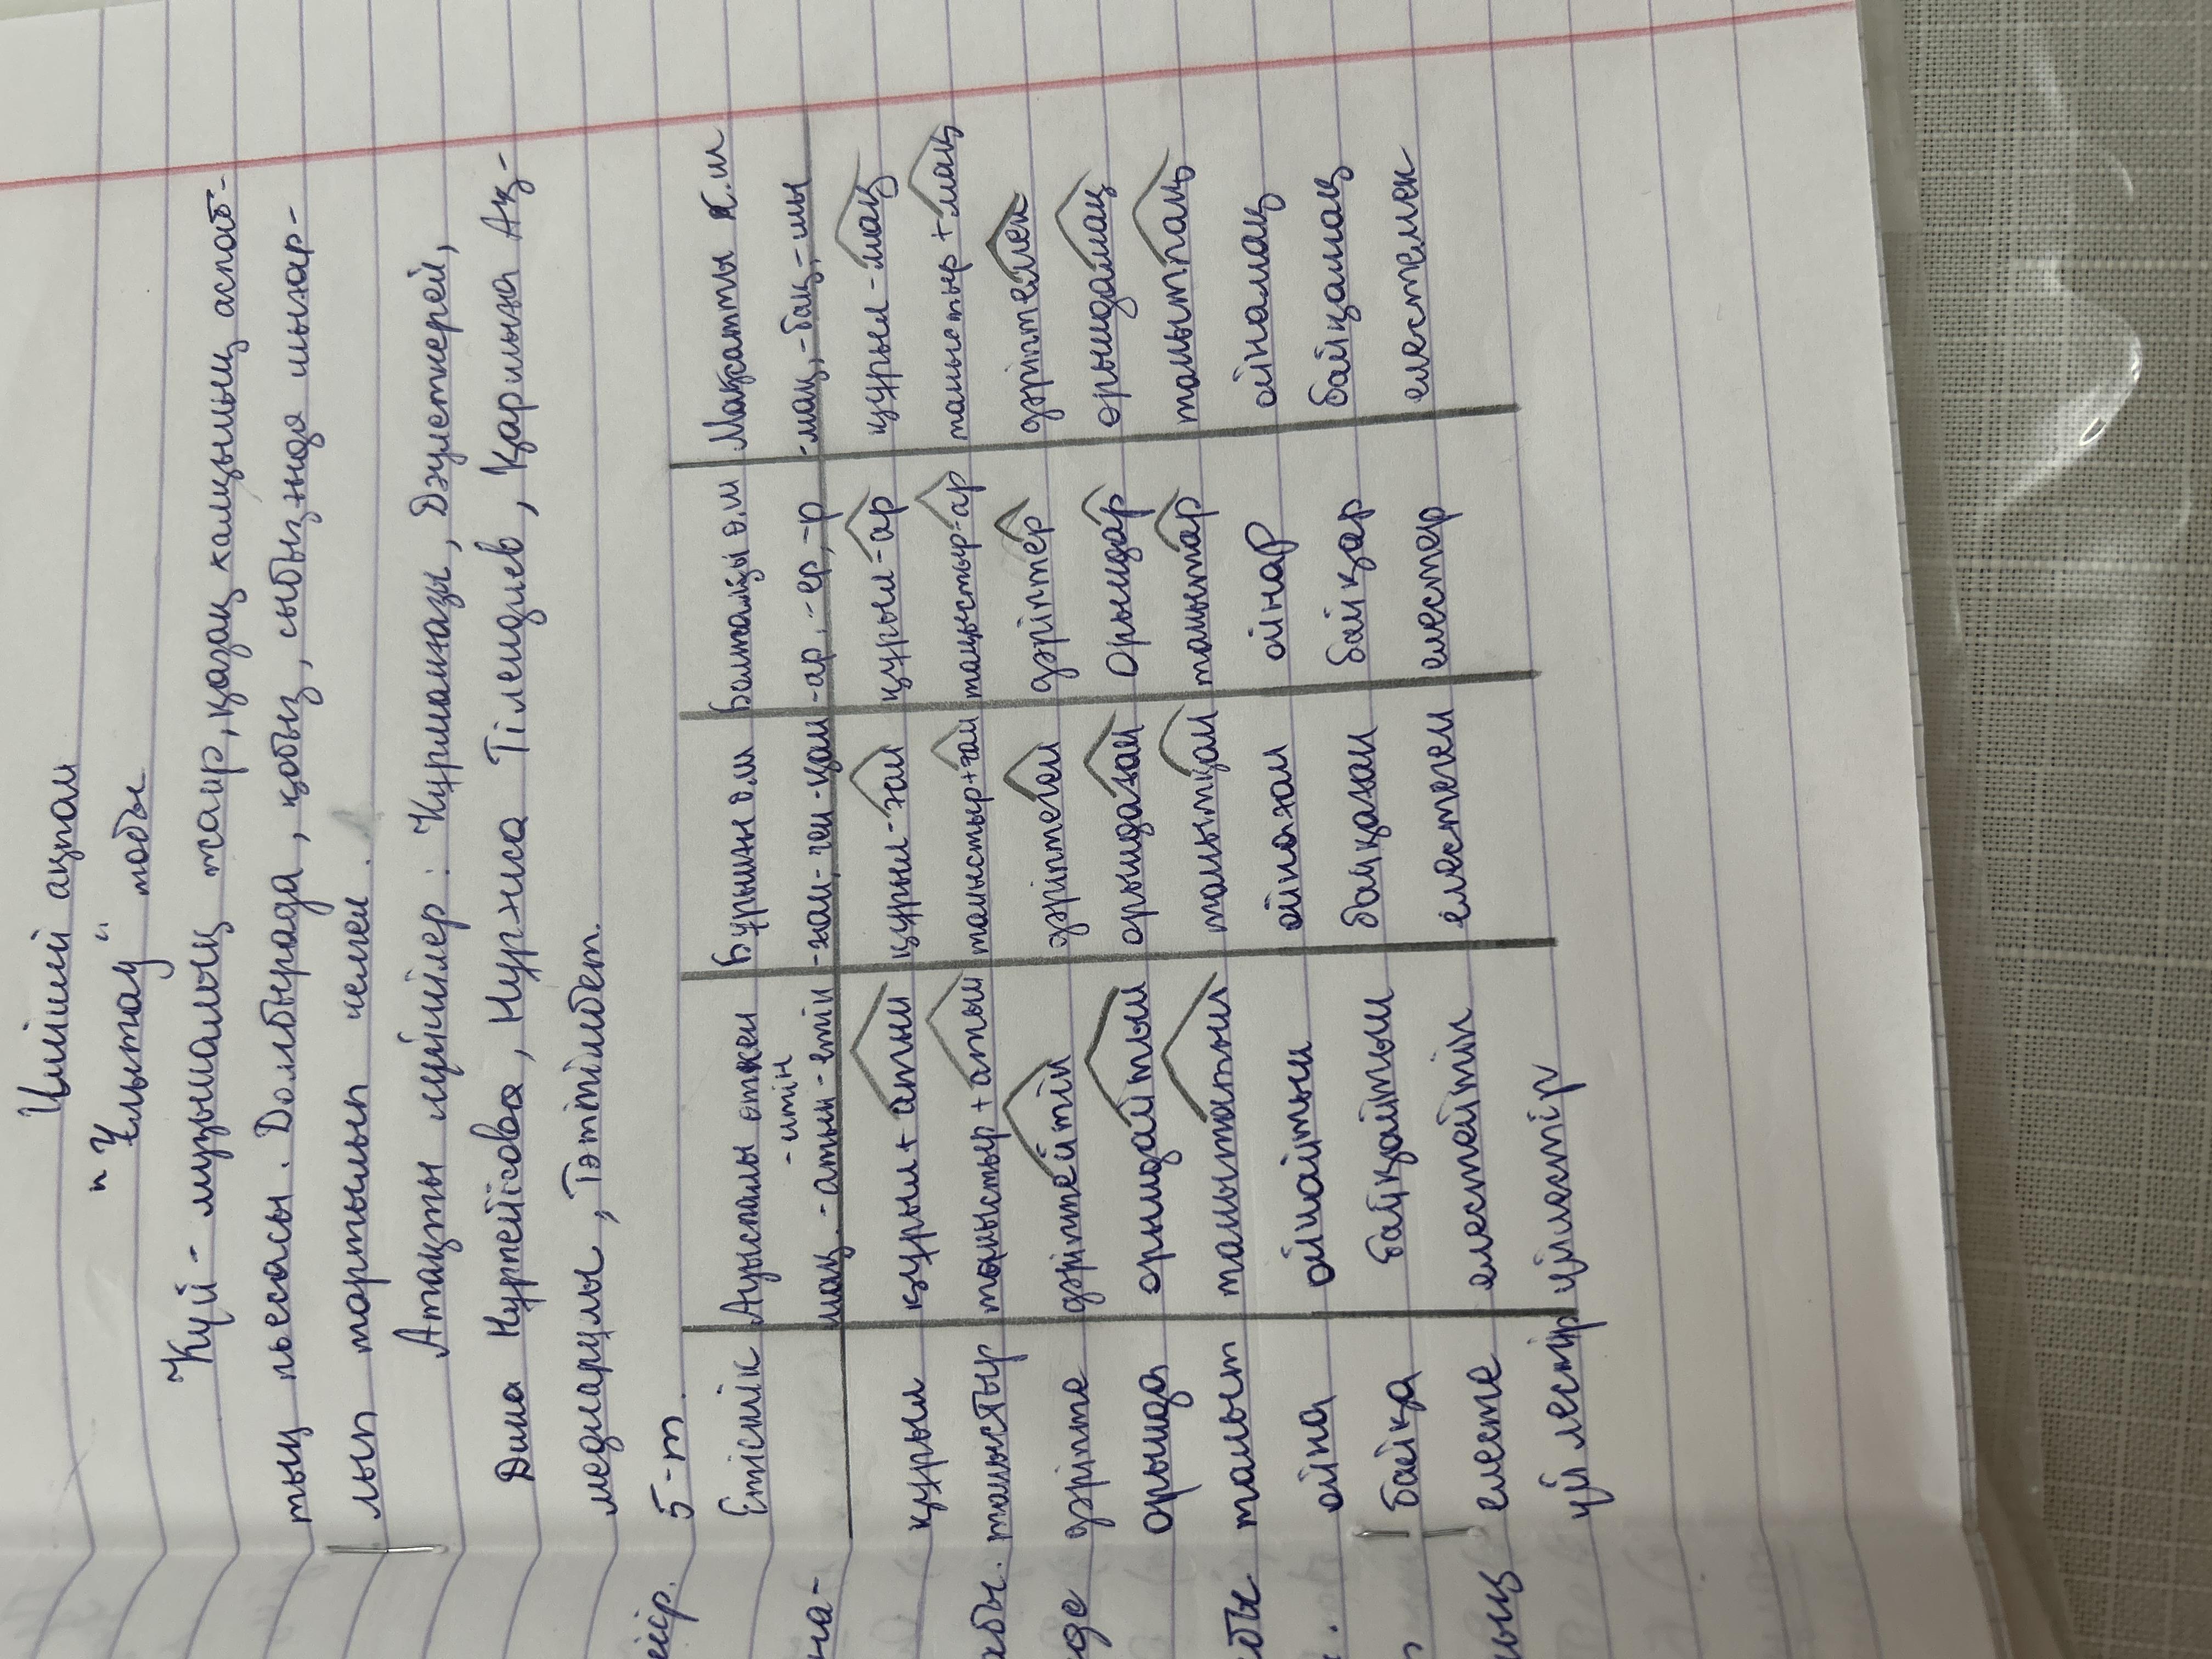 Үшінші ақпан
"Ұлытау" тобы
Күй - музыкалық жанр, қазақ халқының аспап-
тық пьесасы. Домбырада, қобыз, сыбызғыда шығар-
лып тартылып келген.
Атақты күйшілер: Құрманғазы, Дәулеткерей,
Дина Нүрпейісова, Нұрғиса Тілендиев, Қаршыға Ах-
медиярұлы, Тәттімбет.
5-т
Етістік Ауыспалы өткен Бұрынғы ө.ш Болжалды ө.ш Мақсатты к.ш
-итін
шақ. -атын -етін -ған, -ген -қан -ар, -ер, -р -мақ, -бақ, -шы
құрыл құрыл+атын құрыл-ған құрыл-ар құрыл-мақ
таныстыр таныстыр+атын таныстыр+ған таныстыр-ар таныстыр+мақ
дәріпте дәріптейтін дәріптеген дәріптер дәріптемек
орында орындайтын орындаған Орындар орындамақ
таныт танытатын танытқан танытар танытпақ
ойна ойнайтын ойнаған ойнар ойнамақ
байқа байқайтын байқаған байқар байқамақ
елесте елестейтін елестеген елестер елестемек
үйлестір үйлестір